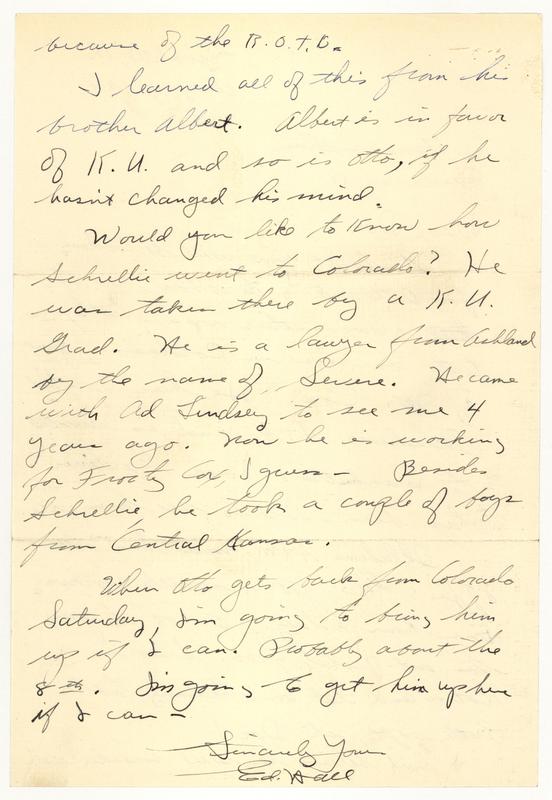 because of the R.O.T.C.
I learned all of this from his
brother Albert. Albert is in favor
of K.U. and so is Otto, if he
hasn't changed his mind.
Would you like to know how
Schrellie went to Colorado? He
was taken there by a K.U.
Grad. He is a lawyer from Ashland
by the name of. He came
with Ad Lindsey to see me 4
years ago. Now he is working
for Frosty Cox, I guess – Besides
Schrellie he took a couple of boys
from Central Kansas.
When Otto gets back from Colorado
Saturday, I'm going to bring him
up if I can. Probably about the
8th. I'm going to get him up here
if I can –
Sincerely Yours
Ed. Hall